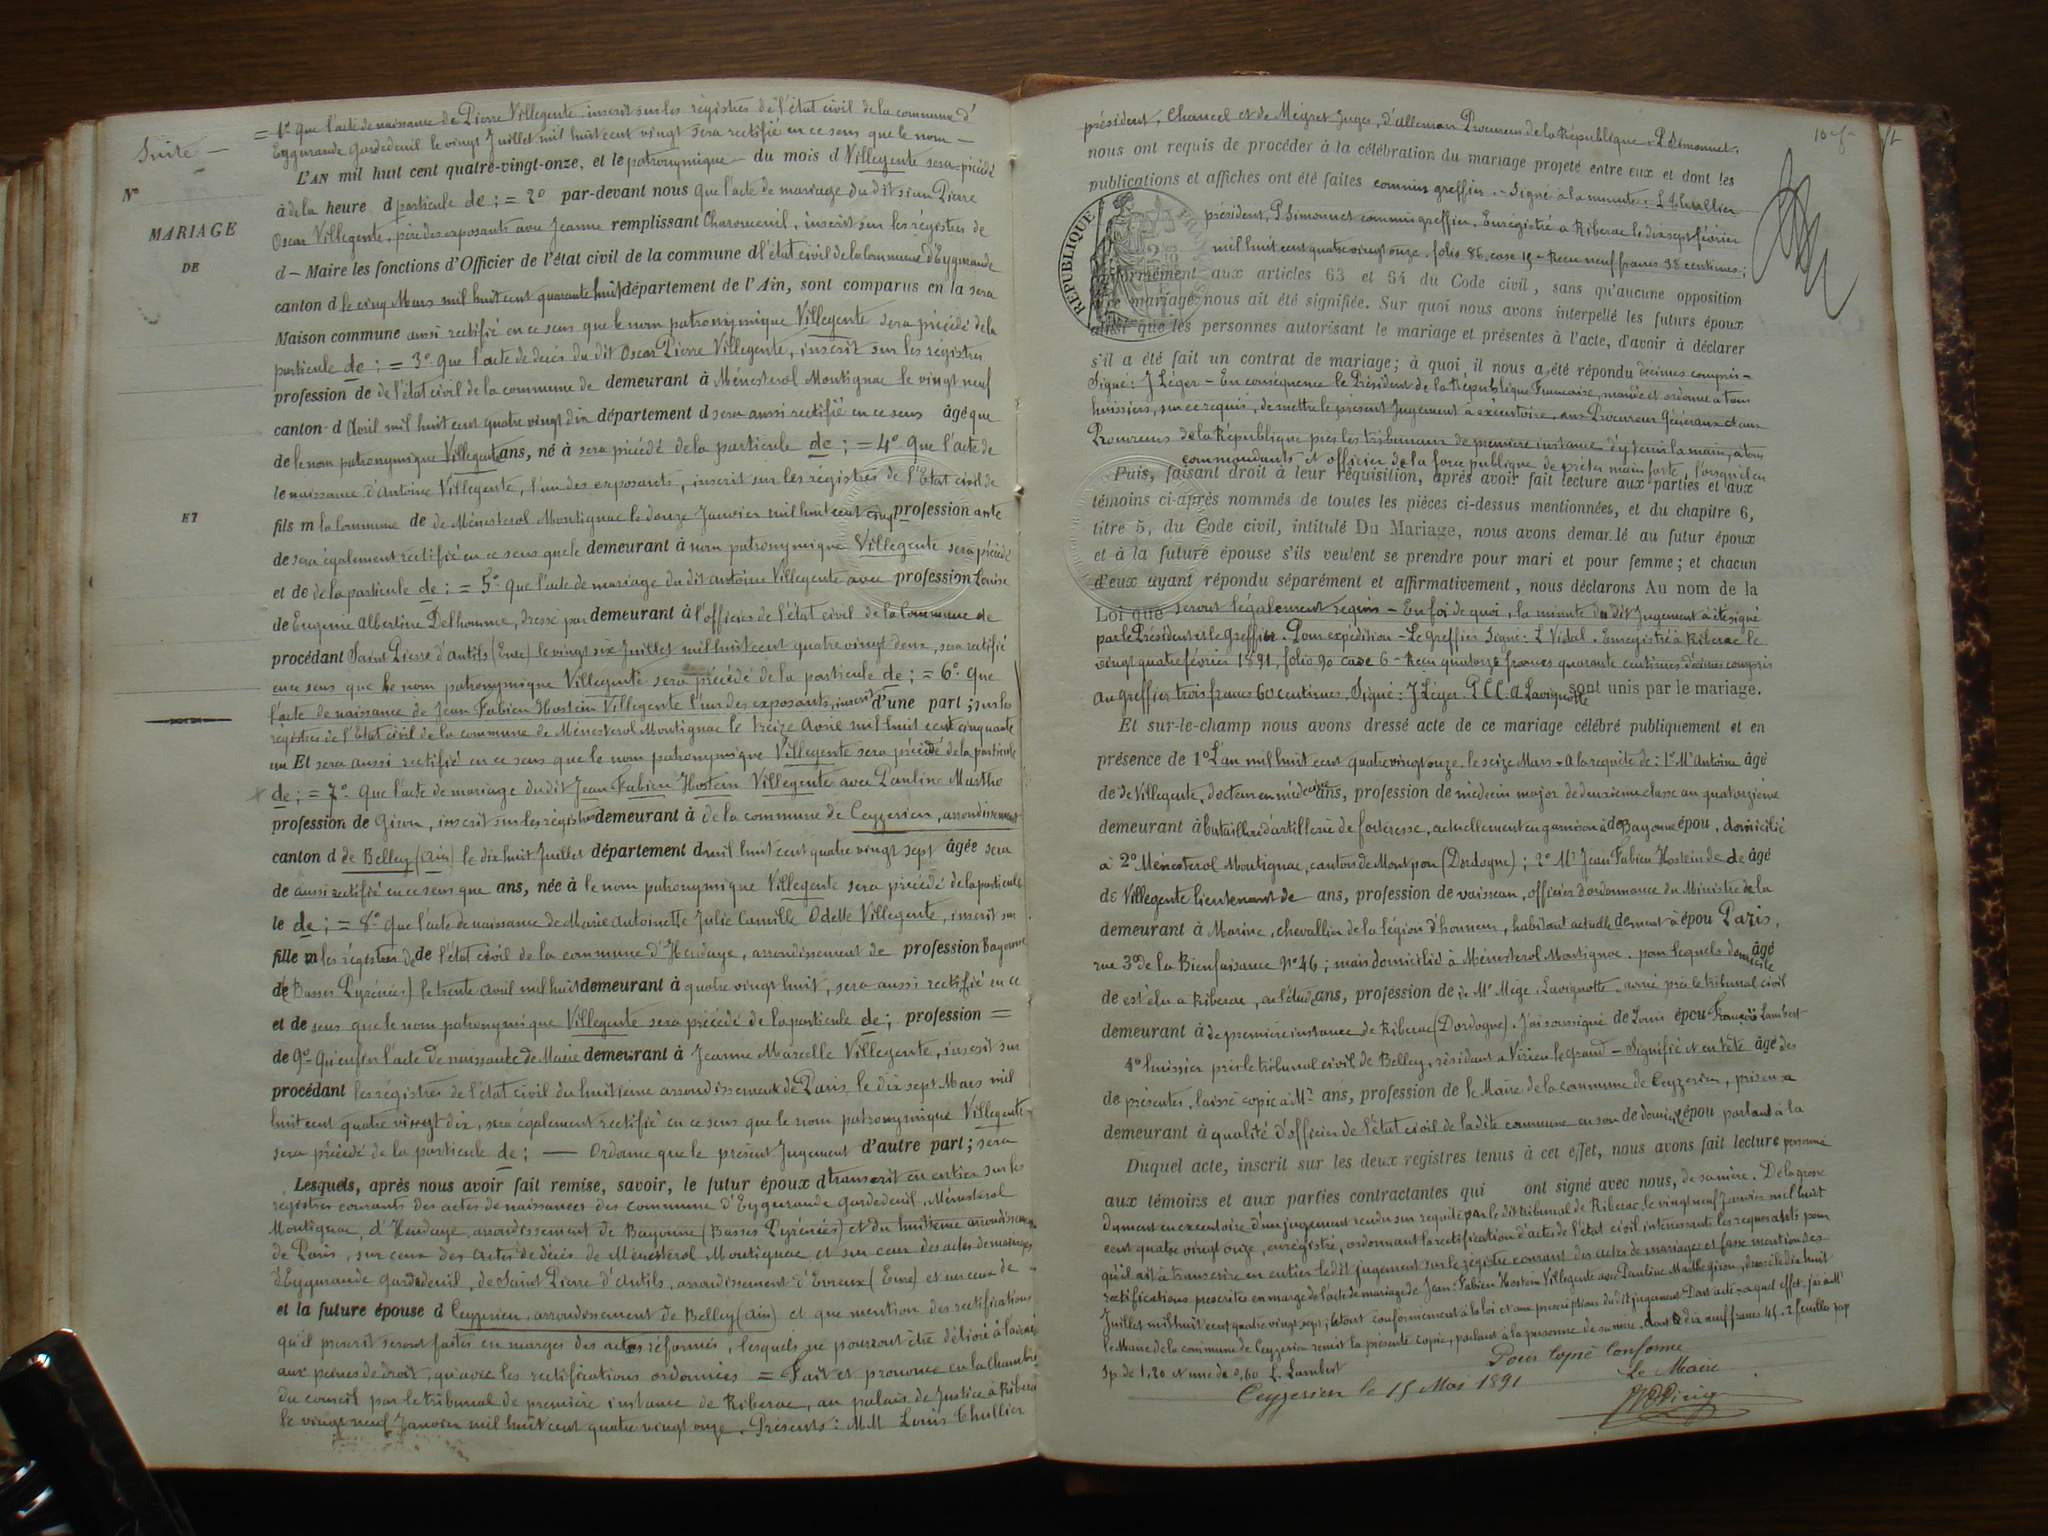 Suite —
= 1º que l'acte de naissance de Pierre Villegente, inscrit sur les régistres de l'état civil de la commune d'
Eygurande Gardedeuil le vingt Juillet mil huit cent vingt sera rectifié en ce sens que le nom —
L'AN mil huit cent quatre-vingt-onze, et le patronymique du mois d Villegente sera précédé
Nº
à de la heure d particule de ; = 2º par-devant nous que l'acte de mariage du dit sieur Pierre
MARIAGE
Oscar Villegente, père des exposants avec Jeanne remplissant Charoueuil, inscrit sur les régistres de
DE
d – Maire les fonctions d'Officier de l'état civil de la commune d l'état civil de la Commune d'Eygurande
canton d le cinq Mars mil huit cent quarante huit département de l'Ain, sont comparus en la sera
Maison commune aussi rectifié en ce sens que le nom patronymique Villegente sera précédé de la
particule de ; = 3º que l'acte de décès du dit Oscar Pierre Villegente, inscrit sur les régistres
profession de de l'état civil de la commune de demeurant à Ménesterol Montignac le vingt neuf
canton d Avril mil huit cent quatre vingt dix département d sera aussi rectifié en ce sens âgé que
de le nom patronymique Villegente ans, né à sera précédé de la particule de ; = 4º Que l'acte de
le naissance d'Antoine Villegente, l'un des exposants, inscrit sur les régistres de l'Etat civil de
ET
fils m la Commune de de Ménesterol Montignac le douze Janvier mil huit cent cinq profession ante
de sera également rectifié en ce sens que le demeurant à nom patronymique Villegente sera précédé
et de de la particule de ; = 5º que l'acte de mariage du dit Antoine Villegente avec profession Louise
de Eugenie Albertine Delhomme, dressé par demeurant à l'officier de l'état civil de la Commune de
procédant Saint Pierre d'Autils (Eure) le vingt six Juillet mil huit cent quatre vingt deux, sera rectifié
en ce sens que le nom patronymique Villegente sera précédé de la particule de ; = 6º que
l'acte de naissance de Jean Fabien Hostein Villegente l'un des exposants, inscrit d'une part ; sur les
régistres de l'Etat civil de la commune de Ménesterol Montignac le treize Avril mil huit cent cinquante
un Et sera aussi rectifié en ce sens que le nom patronymique Villegente sera précédé de la particule
de ; = 7º Que l'acte de mariage du dit Jean Fabien Hostein Villegente avec Pauline Marthe
profession de Giron, inscrit sur les régistres demeurant à de la commune de Ceyzerieu, arrondissement
canton d de Belley (Ain) le dix huit Juillet département d mil huit cent quatre vingt sept âgée sera
de aussi rectifié en ce sens que ans, née à le nom patronymique Villegente sera précédé de la particule
le de ; = 8º Que l'acte de naissance de Marie Antoinette Julie Camille Odette Villegente, inscrit sur
fille m les régistres de de l'état civil de la commune d'Hendaye, arrondissement de profession Bayonne
de (Basses Pyrénées) le trente Avril mil huit demeurant à quatre vingt huit, sera aussi rectifié en ce
et de sens que le nom patronymique Villegente sera précédé de la particule de ; profession =
de 9º Qu'enfin l'acte de naissance de Marie demeurant à Jeanne Marcelle Villegente, inscrit sur
procédant les régistres de l'état civil du huitième arrondissement de Paris, le dix sept Mars mil
huit cent quatre vingt dix, sera également rectifié en ce sens que le nom patronymique Villegente
sera précédé de la particule de ; — Ordonne que le présent Jugement d'autre part ; sera
Lesquels, après nous avoir fait remise, savoir, le futur époux d transcrit en entier sur les
régistres courants des actes de naissances des commune d'Eygurande Gardedeuil, Ménesterol
Montignac, d'Hendaye, arrondissement de Bayonne (Basses Pyrénées) et du huitième arrondissement
de Paris, sur ceux des actes de décès de Ménesterol Montignac et sur ceux des actes de mariages
d'Eygurande Gardedeuil, de Saint Pierre d'Autils, arrondissement d'Evreux (Eure) et sur ceux de
et la future épouse d Ceyzerieu, arrondissement de Belley (Ain) et que mention des rectifications
qu'il prescrit seront faites en marges des actes réformés, lesquels ne pourront être délivré à l'avenir
aux peines de droit, qu'avec les rectifications ordonnées = Fait et prononcé en la Chambre
du conseil par le tribunal de première instance de Riberac, au palais de Justice à Riberac
le vingt neuf Janvier mil huit cent quatre vingt onze. Présents : M.M Louis Chullier
président, Chancel et de Meyret Juges, d'alleman Procureur de la République – P. Simonnet,
nous ont requis de procéder à la célébration du mariage projeté entre eux et dont les
publications et affiches ont été faites commis greffier. – Signé à la minute : L Thullier
président, P. Simonnet commis greffier. Enrégistré a Riberac le dix sept février
mil huit cent quatre vingt onze. folio 86, case 15 – Reçu neuf francs 38 centimes ;
RÉPUBLIQUE FRANÇAISE
conformément aux articles 63 et 64 du Code civil, sans qu'aucune opposition
à ce mariage nous ait été signifiée. Sur quoi nous avons interpellé les futurs époux
ainsi que les personnes autorisant le mariage et présentes à l'acte, d'avoir à déclarer
s'il a été fait un contrat de mariage ; à quoi il nous a été répondu décimes compris –
Signé : J Léger – En conséquence le Président de la République Française, mande et ordonne à tous
huissiers, sur ce requis, de mettre le présent Jugement à exécutoire, aux Procureur Généraux et aux
Procureurs de la République près les tribunaux de première instance d'y tenir la main, à tous
commandants et officier de la force publique de prêter main forte, lorsqu'il en
Puis, faisant droit à leur réquisition, après avoir fait lecture aux parties et aux
témoins ci-après nommés de toutes les pièces ci-dessus mentionnées, et du chapitre 6,
titre 5, du Code civil, intitulé Du Mariage, nous avons demandé au futur époux
et à la future épouse s'ils veulent se prendre pour mari et pour femme ; et chacun
d'eux ayant répondu séparément et affirmativement, nous déclarons Au nom de la
Loi que seront légalement requis – En foi de quoi, la minute du dit Jugement à été signé
par le Président et le greffier. Pour expédition – Le greffier Signé : L Vidal. Enregistré à Riberac le
vingt quatre février 1891, folio 90 case 6 – Reçu quatorze francs quarante centimes décimes compris
Au greffier trois francs 60 centimes. Signé : J Léger. P.C.C. A Lavignotte sont unis par le mariage.
Et sur-le-champ nous avons dressé acte de ce mariage célébré publiquement et en
présence de 1º L'an mil huit cent quatre vingt onze, le seize Mars – A la requête de : 1º Mr Antoine âgé
de de Villegente, docteur en médecine ans, profession de médecin major de deuxième classe au quatorzième
demeurant à bataillon d'artillerie de forteresse, actuellement en garnison à de Bayonne épou, domicilié
à 2º Ménesterol Montignac, canton de Montpon (Dordogne) ; 2º Mr Jean Fabien Hostein de de âgé
de Villegente lieutenant de ans, profession de vaisseau, officier d'ordonnance du Ministre de la
demeurant à Marine, chevallier de la légion d'honneur, habitant actuellement à épou Paris,
rue 3º de la Bienfaisance Nº 46 ; mais domicilié à Ménesterol Montignac. pour lequels domicile âgé
de est élu a Riberac, en l'étude ans, profession de de Mr Mege-Lavignotte avoué près le tribunal civil
demeurant à de première instance de Riberac (Dordogne). J'ai soussigné de Louis épou François Lambert
4º huissier près le tribunal civil de Belley, résidant a Virieu le grand – Signifié et en tête âgé des
de présentes, laissé copie à Mr ans, profession de le Maire de la commune de Ceyzerieu, pris en sa
demeurant à qualité d'officier de l'état civil de la dite commune en son de domicile épou parlant à la
Duquel acte, inscrit sur les deux registres tenus à cet effet, nous avons fait lecture personne
aux témoins et aux parties contractantes qui ont signé avec nous, de sa mère. De la grosse
dument en executoire d'un jugement rendu sur requête par le dit tribunal de Riberac, le vingt neuf Janvier mil huit
cent quatre vingt onze, enrégistré, ordonnant la rectification d'actes de l'état civil intéressants les requerants pour
qu'il ait à transcrire en entier le dit jugement sur le régistre courant des actes de mariages et fasse mention des
rectifications prescrites en marge de l'acte de mariage de Jean-Fabien Hostein Villegente avec Pauline Marthe Giron, dressé le dix huit
Juillet mil huit cent quatre vingt sept ; le tout conformément à la loi et aux prescriptions du dit jugement. Dont acte, auquel effet, j'ai a Mr
le Maire de la commune de Ceyzerieu remis la présente copie, parlant à la personne de sa mère. Cout dix neuf francs 45. 2 feuilles pap
Sp. de 1,20 et une de 0,60 L. Lambert
Pour Copie Conforme
Ceyzerieu le 15 Mai 1891
Le Maire